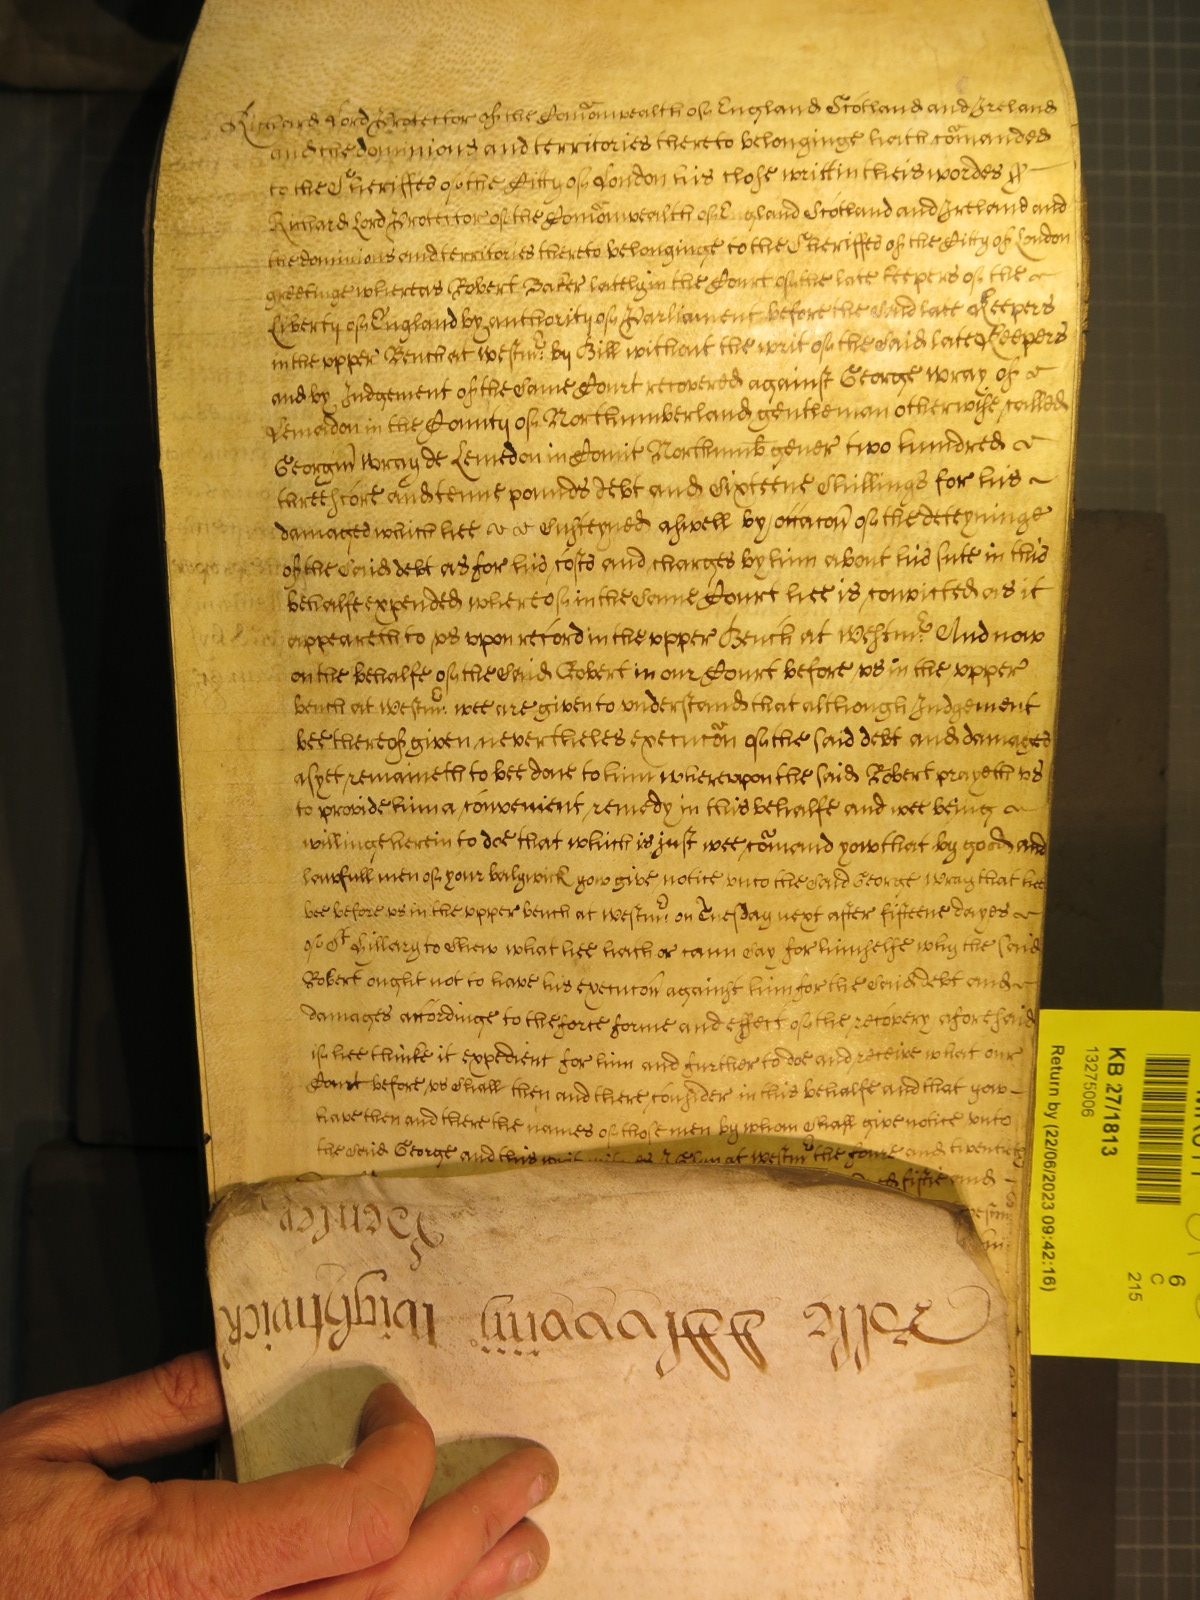 Richard Lord Protector of the Com̄onwealth of England Scotland and Ireland
and the dominions and territories thereto belonginge hath com̄anded
to the Sheriffes of the Citty of London his close writt in theis wordes ss
Richard Lord Protector of the Com̄onwealth of England Scotland and Ireland and
the dominions and territories thereto belonginge to the Sheriffes of the Citty of London
greetinge whereas Robert Baker lately in the Court of the late keepers of the
Liberty of England by authority of Parliament before the said late Keepers
in the upper Bench at Westmr by Bill without the writ of the said late Keepers
and by Judgement of the same Court recovered against George Wray of
Lemedon in the County of Northumberland gentleman otherwise called
Georgiu Wray de Lemedon in Comit Northumb gener two hundred
threescore and tenne pounds debt and sixteene shillings for his
damages which hee susteyned aswell by occac̄on of the deteyninge
of the said debt as for his costs and charges by him about his sute in this
behalfe expended whereof in the same Court hee is convicted as it
appeareth to vs vpon record in the vpper Bench at Westmr And now
on the behalfe of the said Robert in our Court before vs in the vpper
bench at Westmr wee are given to vnderstand that although Judgement
bee thereof given neverthelес execuc̄on of the said debt and damages
as yet remaineth to bee done to him wherevpon the said Robert prayeth vs
to provide him a convenient remedy in this behalfe and wee being
willinge herein to doe that which is just wee com̄and yow that by good and
lawfull men of your balywick yow give notice vnto the said George Wray that hee
bee before vs in the vpper bench at Westmr on Tuesday next after fifteene dayes
of St Hillary to shew what hee hath or cann say for himselfe why the said
Robert ought not to have his execuc̄on against him for the said debt and
damages accordinge to the force forme and effect of the recovery aforesaid
if hee thinke it expedient for him and further to doe and receive what our
Court before vs shall then and there consider in this behalfe and that yow
have then and there the names of those men by whom shall give notice vnto
the said George and this writ at Westmr the foure and twentieth
fiftie and
Westm
Rolle Wightwick
Henley
KB 27/1813
13275006
Return by (22/06/2023 09:42:16)
6
C
215